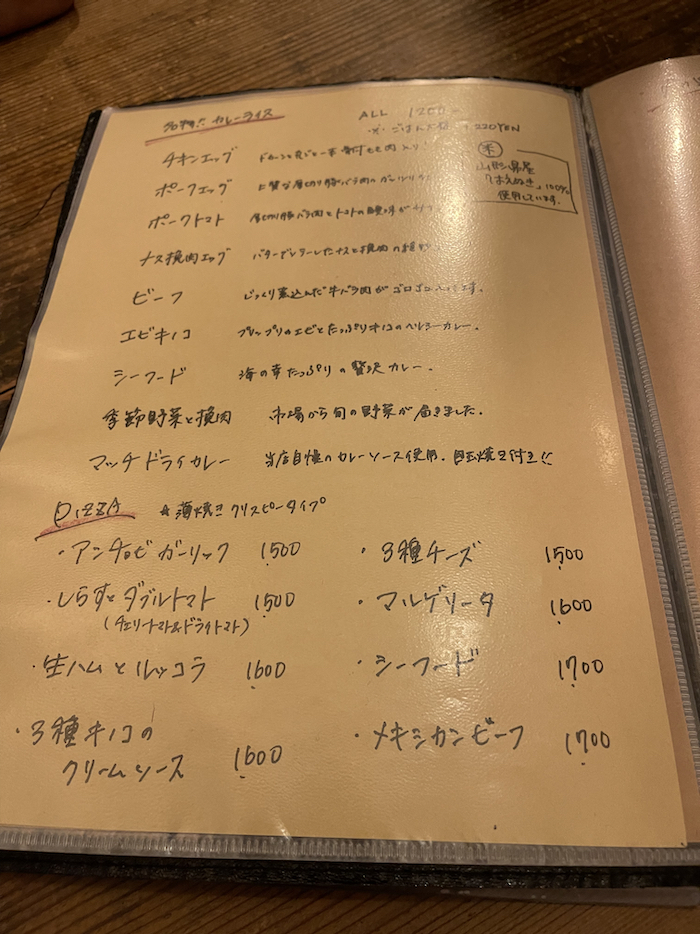 名物!! カレーライス ALL 1200-
220YEN
チキンエッグ
米
山形県産
「はえぬき」100%
使用しています。
ポークエッグ 上質な厚切り豚バラ肉の
ポークトマト 厚切り豚バラ肉とトマトの
ナス挽肉エッグ バターでソテーしたナスと挽肉の
ビーフ じっくり煮込んだ牛バラ肉がゴロゴロ
エビキノコ プリップリのエビとたっぷりキノコのヘルシーカレー。
シーフード 海の幸たっぷりの贅沢カレー。
季節野菜と挽肉 市場から旬の野菜が届きました。
マッチドライカレー 当店自慢のカレーソース使用。目玉焼き付き!!
PIZZA ☆薄焼きクリスピータイプ
・アンチョビガーリック 1500 ・3種チーズ 1500
・しらすとダブルトマト 1500 ・マルゲリータ 1600
(チェリートマト&ドライトマト)
・生ハムとルッコラ 1600 ・シーフード 1700
・3種キノコの
クリームソース 1600 ・メキシカンビーフ 1700